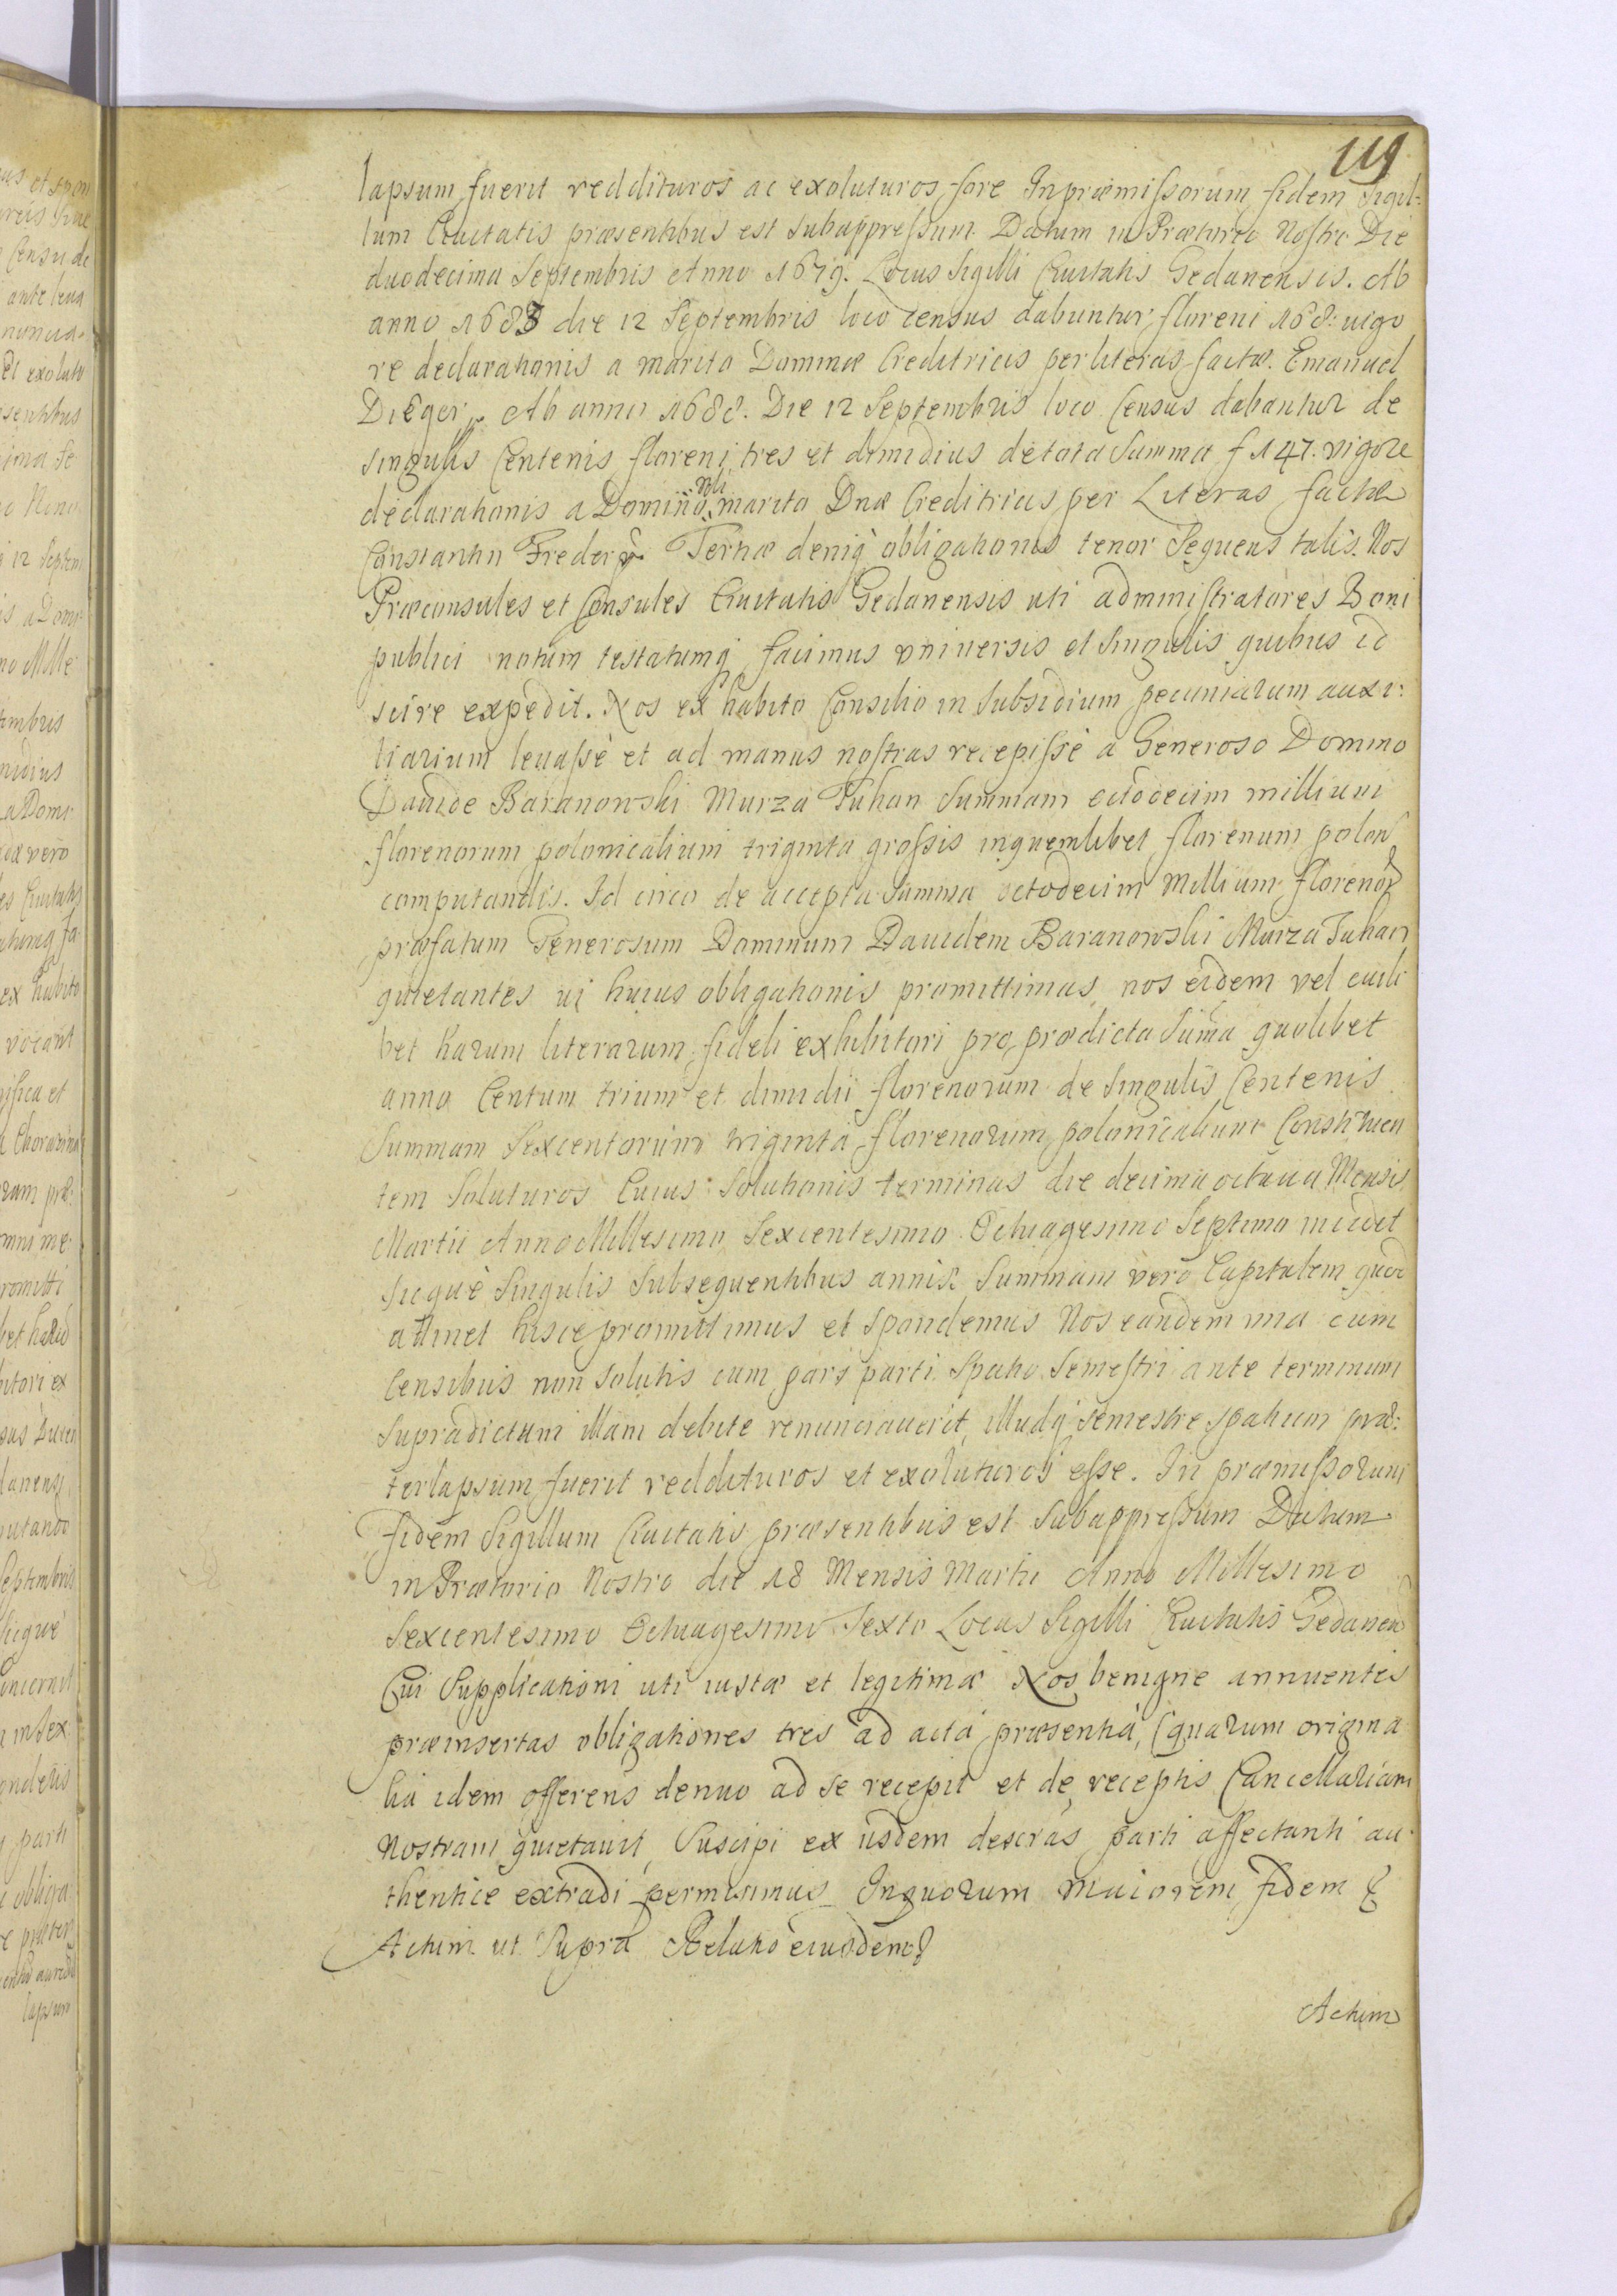 119
lapsum fuerit reddituros ac exoluturos fore Inpræmissorum fidem Sigil:
lum Civitatis præsentibus est subappressum Datum in Prætorio Nostro Die
duodecima Septembris Anno 1679. Locus Sigilli Civitatis Gedanensis. Ab
anno 1683 die 12 Septembris loco census dabuntur floreni 168: uigo
re declarationis a marito Dominæ Creditricis per literas factæ. Emanuel
Dieger Ab anno 1688. Die 12 Septembris loco Census dabantur de
singulis Centenis floreni tres et dimidius detota Summa f 147. vigore
declarationis a Domino Nli marito Dnæ Creditricis per Literas factæ
Constantin Freder Tertiæ deniq obligationis tenor Sequens talis. Nos
Præconsules et Consules Civitatis Gedanensis uti administratores Boni
publici notum testatumq facimus vniuersis et singulis quibus id
scire expedit. Nos ex habito Consilio in Subsidium pecuniarum auxi:
liarium leuassè et ad manus nostras recepissè a Generoso Domino
Dauide Baranowski Murza Tuhan Summam octodecim millium
florenorum polonicalium triginta grossis inquemlibet florenum polon
computandis. Id circo de accepta summa octodecim Millium floreno
præfatum Generosum Dominum Dauidem Baranowski Murza Tuhan
quietantes ui huius obligationis promittimus nos eidem vel cuili
bet harum literarum fideli exhibitori pro prædicta suma quolibet
anno Centum trium et dimidii florenorum de singulis Centenis
Summam Sexcentorum triginta florenorum polonicalium Constituen
tem Soluturos Cuius Solutionis terminus die decima octaua Mensis
Martii Anno Millesimo Sexcentesimo Octuagesimo Septimo incidet
sicquè Singulis Subsequentibus annis Summam verò Capitalem quod
attinet hisce promittimus et spondemus Nos eandem una cum
Censibus non solutis cum pars parti Spatio Semestri ante terminum
Supradictum illam debite renunciauerit, illudq semestre spatium præ:
terlapsum fuerit reddituros et exoluturos esse. In præmissorum
fidem Sigillum Civitatis præsentibus est subappressum Datum
in Prætorio Nostro die 18 Mensis Martii Anno Millesimo
Sexcentesimo Octuagesimo Sexto Locus Sigilli Civitatis Gedanen
Cui Supplicationi uti iustæ et legitimæ Nos benigne annuentes
præinsertas obligationes tres ad acta præsentia, (quarum origina
lia idem offerens denuo ad se recepit et de receptis Cancellariam
Nostram quietauit, Suscipi ex iisdem descras parti affectanti au
thentice extradi permisimus Inquorum maiorem fidem &
Actum ut Supra Relatio eiusdem
Actum